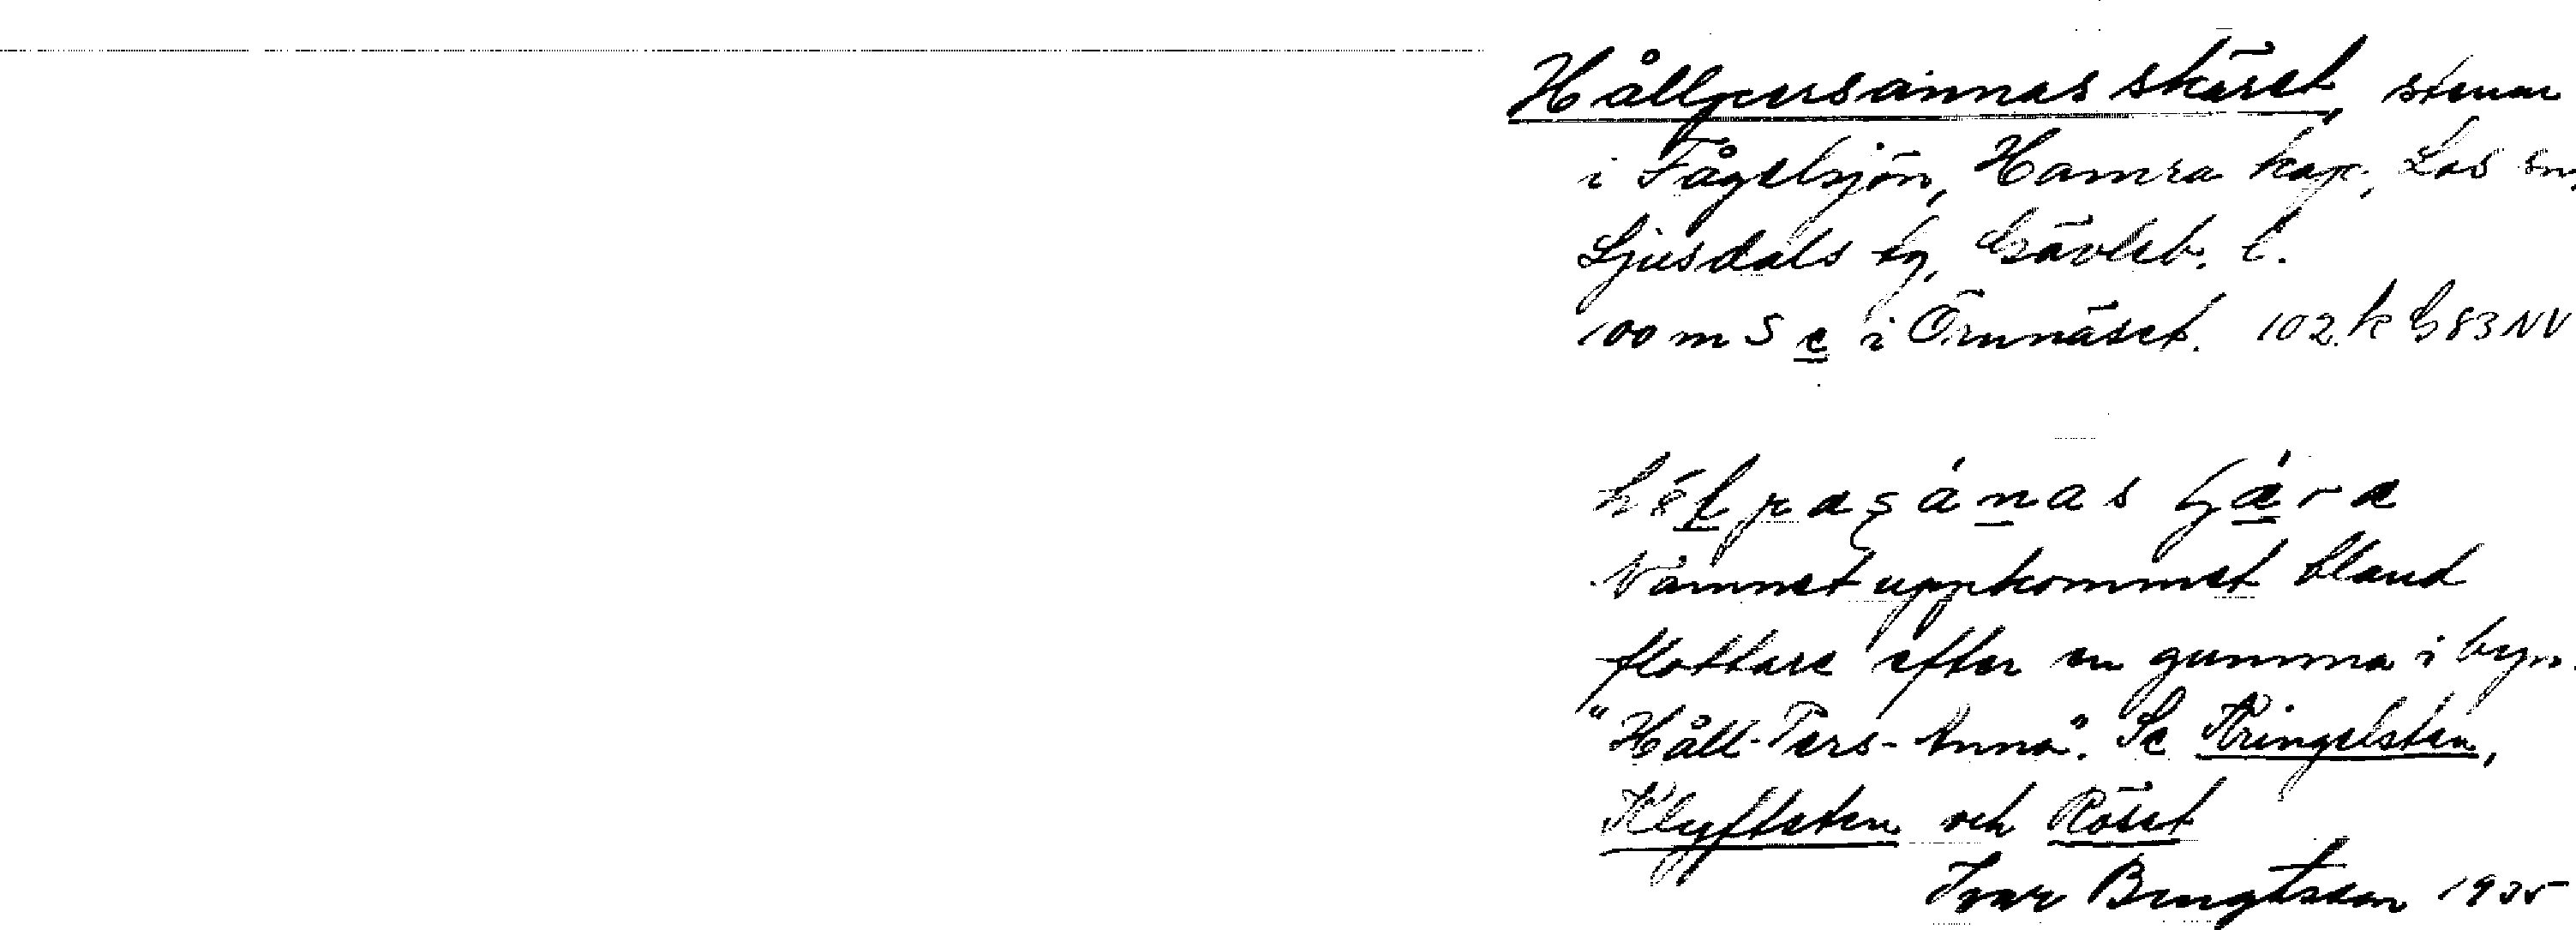 Hållpersannas skäret, stenar
i Fågelsjön, Hamra kap, Los sn,
Ljusdals tg, Gävleb. l.
100 m S e i Örnnäset. 102. k G 83 NV
Namnet uppkommet bland
flottare efter en gumma i byn.
"Håll-Pers-Anna". Se Kringelsten,
Klyftsten och Röset
Ivar Bengtsson 1935